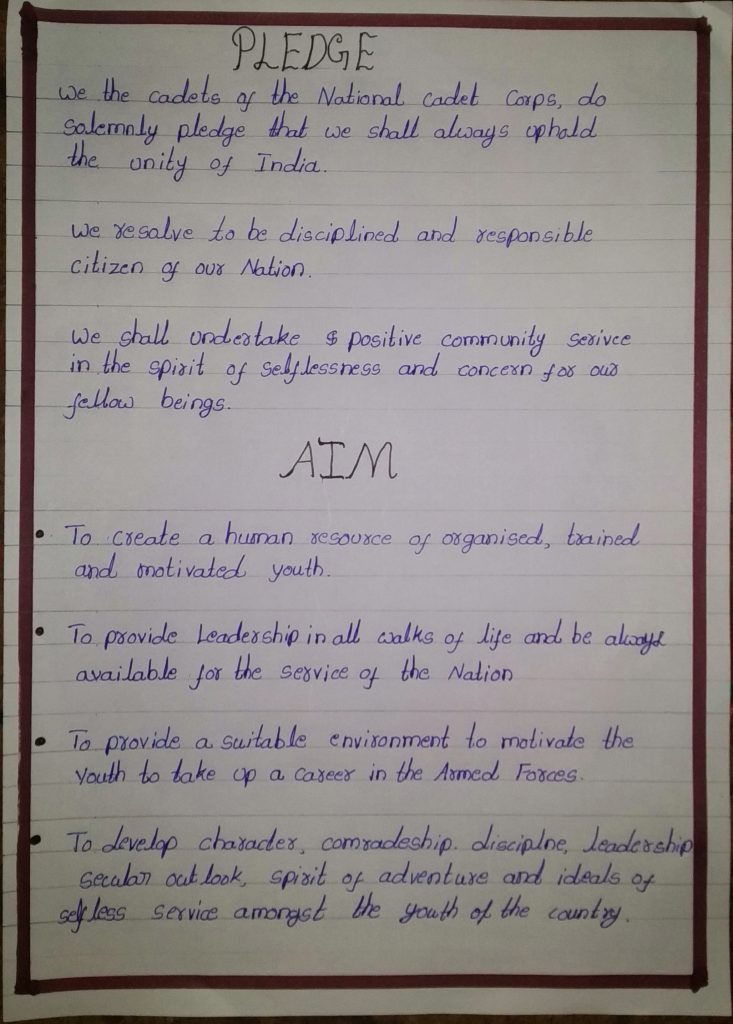 PLEDGE
We the cadets of the National Cadet Corps, do
solemnly pledge that we shall always uphold
the unity of India.
We resolve to be disciplined and responsible
citizen of our Nation.
We shall undertake $ positive community serivce
in the spirit of selflessness and concern for our
fellow beings.
AIM
• To create a human resource of organised, trained
and motivated youth.
• To provide Leadership in all walks of life and be always
available for the service of the Nation
• To provide a suitable environment to motivate the
Youth to take up a career in the Armed Forces.
• To develop character, comradeship. disciplne, leadership
secular outlook, spirit of adventure and ideals of
selfless service amongst the youth of the country.